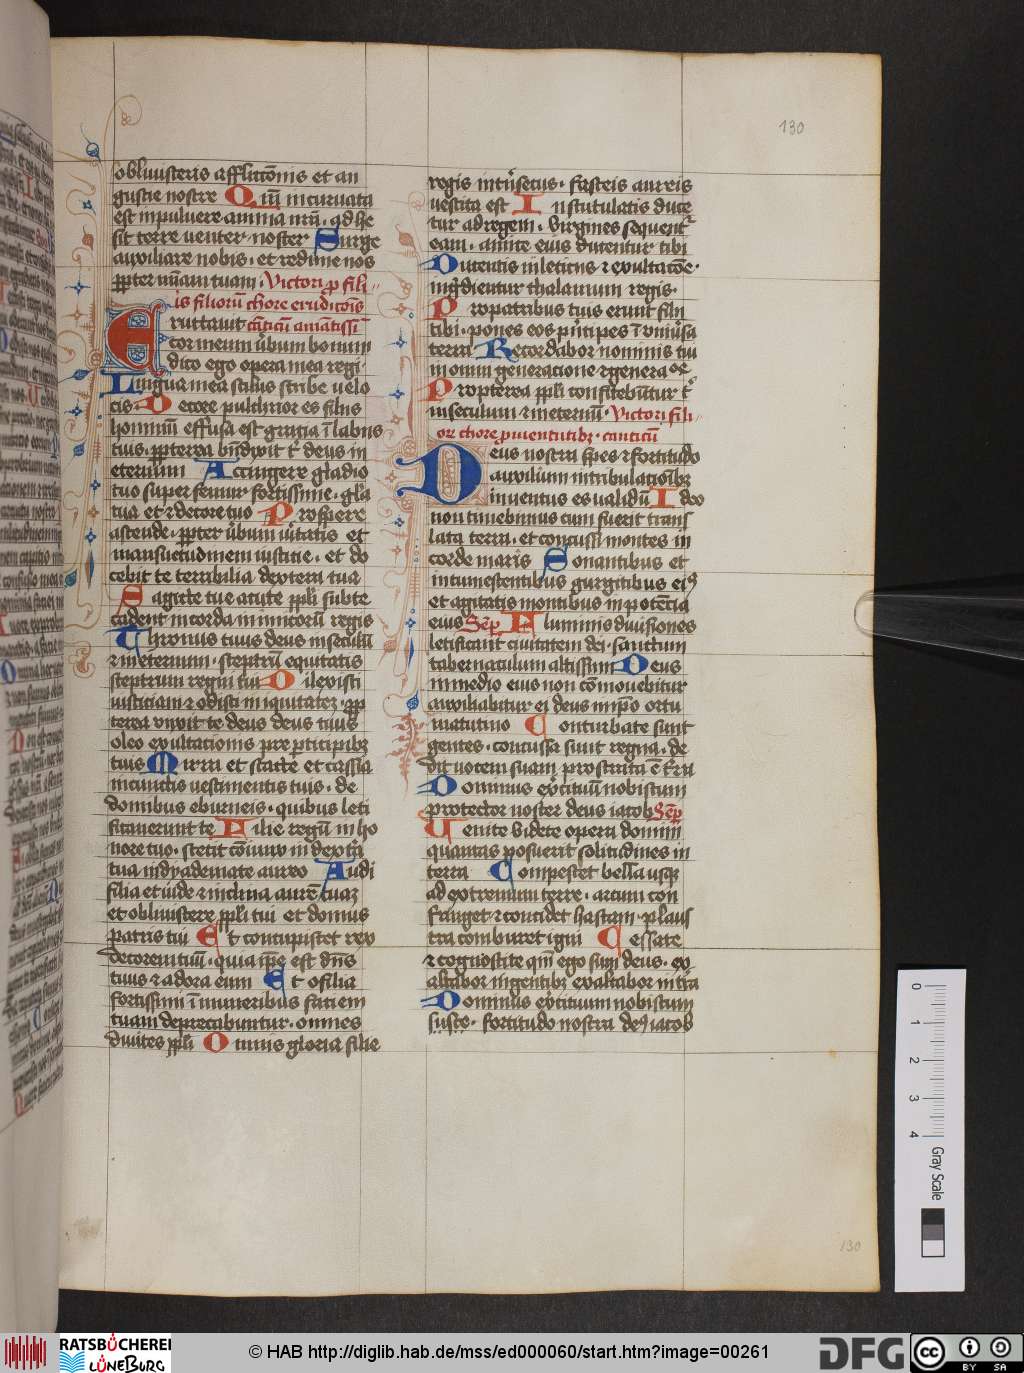 130
obliuisteris afflictõnis et an
gustie nostre Qm̃ incuruata
est in puluere anima nrã · qd he
sit terre uenter noster Surge
auxiliare nobis · et redime nos
ꝓpter nomen tuam · Victori ꝓ fili
is filiorũ chore erudicõis
Eructauit cãticũ amãtissĩ
cor meum ũbum bonum
dico ego opera mea regi
Lingua mea stilus scribe uelo
cis · Decore pulchrior es filiis
hominũ effusa est gracia ĩ labiis
tuis · ꝓpterea bñdixit t̃ deus in
eternum Accingere gladio
tuo super femur fortissime · glã
tua et ⁊ decore tuo Prospere
ascende · ꝓpter ũbum ũitatis et
mansuetudinem iustitie · et do
cebit te terribilia dextera tua
Sagitte tue acute ppli subte
cadent in corda inimicorũ regis
Thronus tuus deus in seculũ
⁊ in eternum · sceptrũ equitatis
sceptrum regni tui Dilexisti
iustitiam ⁊ odisti iniquitatez · ꝓp
terea unxit te deus deus tuus
oleo exultationis pre pticipibꝫ
tuis Mirra et stacte et cassia
in cunctis uestimentis tuis · de
domibus eburneis · quibus leti
ficauerunt te Filie regũ in ho
nore tuo · stetit cõiunx in dextã
tua in dyademate aureo Audi
filia et uide ⁊ inclina aurẽ tuaz
et obliuistere ppli tui et domus
patris tui Et concupistet rex
decorem tuũ · quia ip̃e est dñs
tuus ⁊ adora eum Et o filia
fortissimi ĩ muneribus faciem
tuam deprecabuntur · omnes
diuites ppli Omnis gloria filie
regis intrĩsecus · fasceis aureis
uestita est In scutulatis duce
tur ad regem · virgines sequent᷑
eam · amice eius ducentur tibi
Ducentis in leticiis ⁊ exultacõe ·
ingredientur thalamum regis ·
Pro patribus tuis erunt filii
tibi · pones eos pñcipes ĩ uniũsa
terra Recordabor nominis tui
in omni generatione ⁊ generaoe
Propterea ppli confitebũtur t̃
in seculum ⁊ in eternũ · Victori fili
orũ chore ꝓ iuentutibꝫ · canticũ
Deus nostra spes ⁊ fortitudo
auxilium in tribulacioĩbꝫ
inuentus es ualidũ Ideo
non timebimus cum fuerit trans
lata terra · et concussi montes in
corde maris Sonantibus et
intumescentibus gurgitibus eiꝰ
et agitatis montibus in potẽcia
eius Semp̃ Fluminis diuisiones
letificant ciuitatem dei · sanctum
tabernaculum altissimi Deus
in medio eius non cõmouebitur
auxiliabitur ei deus in ip̃o ortu
matutino Conturbate sunt
gentes · concussa sunt regna · de
dit uocem suam prostrata ẽ t̃ra
Dominus exẽcituũ nobiscum
protector noster deus iacob Semp̃
Uenite videte opera domini
quantas posuerit solitudines in
terra Compescet bella usqꝫ
ad extremum terre · arcum con
fringet ⁊ concidet hastam · plaus
tra comburet igni Cessate
⁊ cognoscite qm̃ ego sum deus · ex
altabor in gentibꝫ exaltabor in t̃ra
Dominus exẽcituum nobiscum
susce · fortitudo nostra deꝰ iacob
130
0 1 2 3 4
Gray Scale
RATSBÜCHEREI LÜNEBURG
© HAB http://diglib.hab.de/mss/ed000060/start.htm?image=00261
DFG
cc BY SA